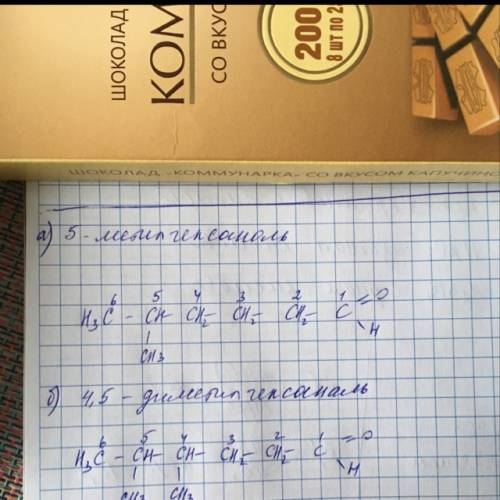 ШОКОЛАД
КОМ
СО ВКУС
200
8 шт по 2
ШОКОЛАД «КОММУНАРКА» СО ВКУСОМ КАПУЧИНО
а) 5 - метилгексаналь
6 5 4 3 2 1
H₃C - CH - CH₂ - CH₂ - CH₂ - C = O
H
CH₃
б) 4,5 - диметилгексаналь
6 5 4 3 2 1
H₃C - CH - CH - CH₂ - CH₂ - C = O
H
CH₃ CH₃